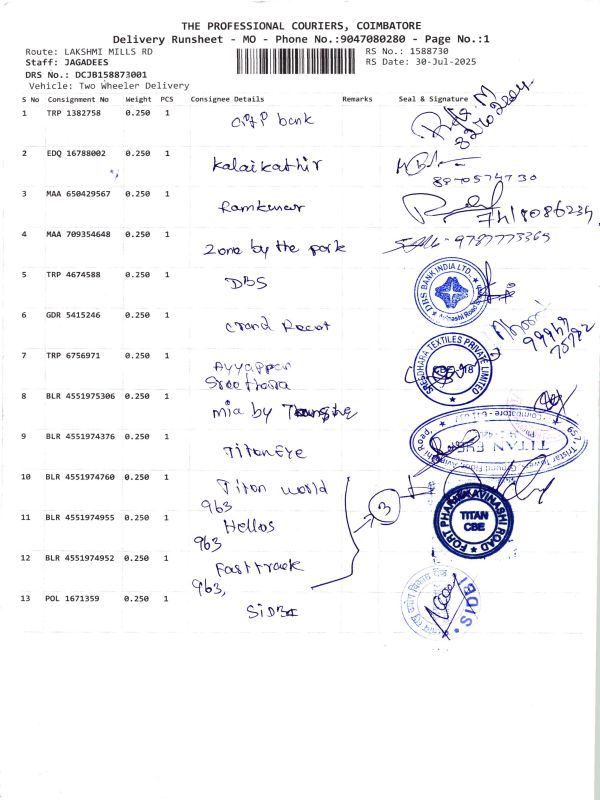 THE PROFESSIONAL COURIERS, COIMBATORE
Delivery Runsheet - MO - Phone No.:9047080280 - Page No.:1
Route: LAKSHMI MILLS RD
RS No.: 1588730
Staff: JAGADEES
RS Date: 30-Jul-2025
DRS No.: DCJB158873001
Vehicle: Two Wheeler Delivery
S No Consignment No Weight PCS Consignee Details Remarks Seal & Signature
1 TRP 1382758 0.250 1 bank
2 EDQ 16788002 0.250 1 Kalaikathir
3 MAA 650429567 0.250 1 Ramkumar
4 MAA 709354648 0.250 1 Zone by the park 9787773365
5 TRP 4674588 0.250 1 DBS
DBS BANK INDIA LTD.
6 GDR 5415246 0.250 1 Grand
7 TRP 6756971 0.250 1 Ayyappan
SREEDHARA TEXTILES PRIVATE LIMITED
8 BLR 4551975306 0.250 1 mia by
9 BLR 4551974376 0.250 1 Titan Eye
TITAN EYE
10 BLR 4551974760 0.250 1 Titan world
963
3
11 BLR 4551974955 0.250 1 Hellos
963
TITAN
CBE
12 BLR 4551974952 0.250 1 Fasttrack
963,
13 POL 1671359 0.250 1 SIDBI